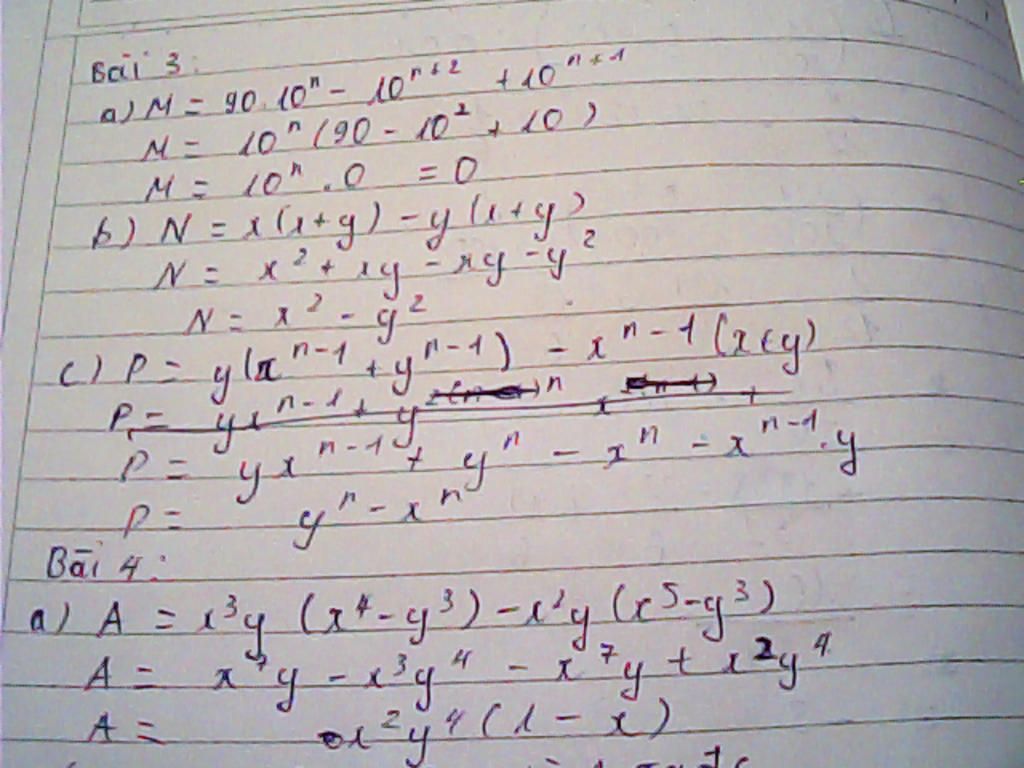 Bài 3:
a) M = 90.10ⁿ - 10ⁿ⁺² + 10ⁿ⁺¹
M = 10ⁿ (90 - 10² + 10)
M = 10ⁿ . 0 = 0
b) N = x(x+y) - y(x+y)
N = x² + xy - xy - y²
N = x² - y²
c) P = y(xⁿ⁻¹ + yⁿ⁻¹) - xⁿ⁻¹(x+y)
P = yxⁿ⁻¹ + yⁿ x +
P = yxⁿ⁻¹ + yⁿ - xⁿ - xⁿ⁻¹.y
P = yⁿ - xⁿ
Bài 4:
a) A = x³y (x⁴ - y³) - x²y (x⁵ - y³)
A = x⁷y - x³y⁴ - x⁷y + x²y⁴
A = x²y⁴(1 - x)